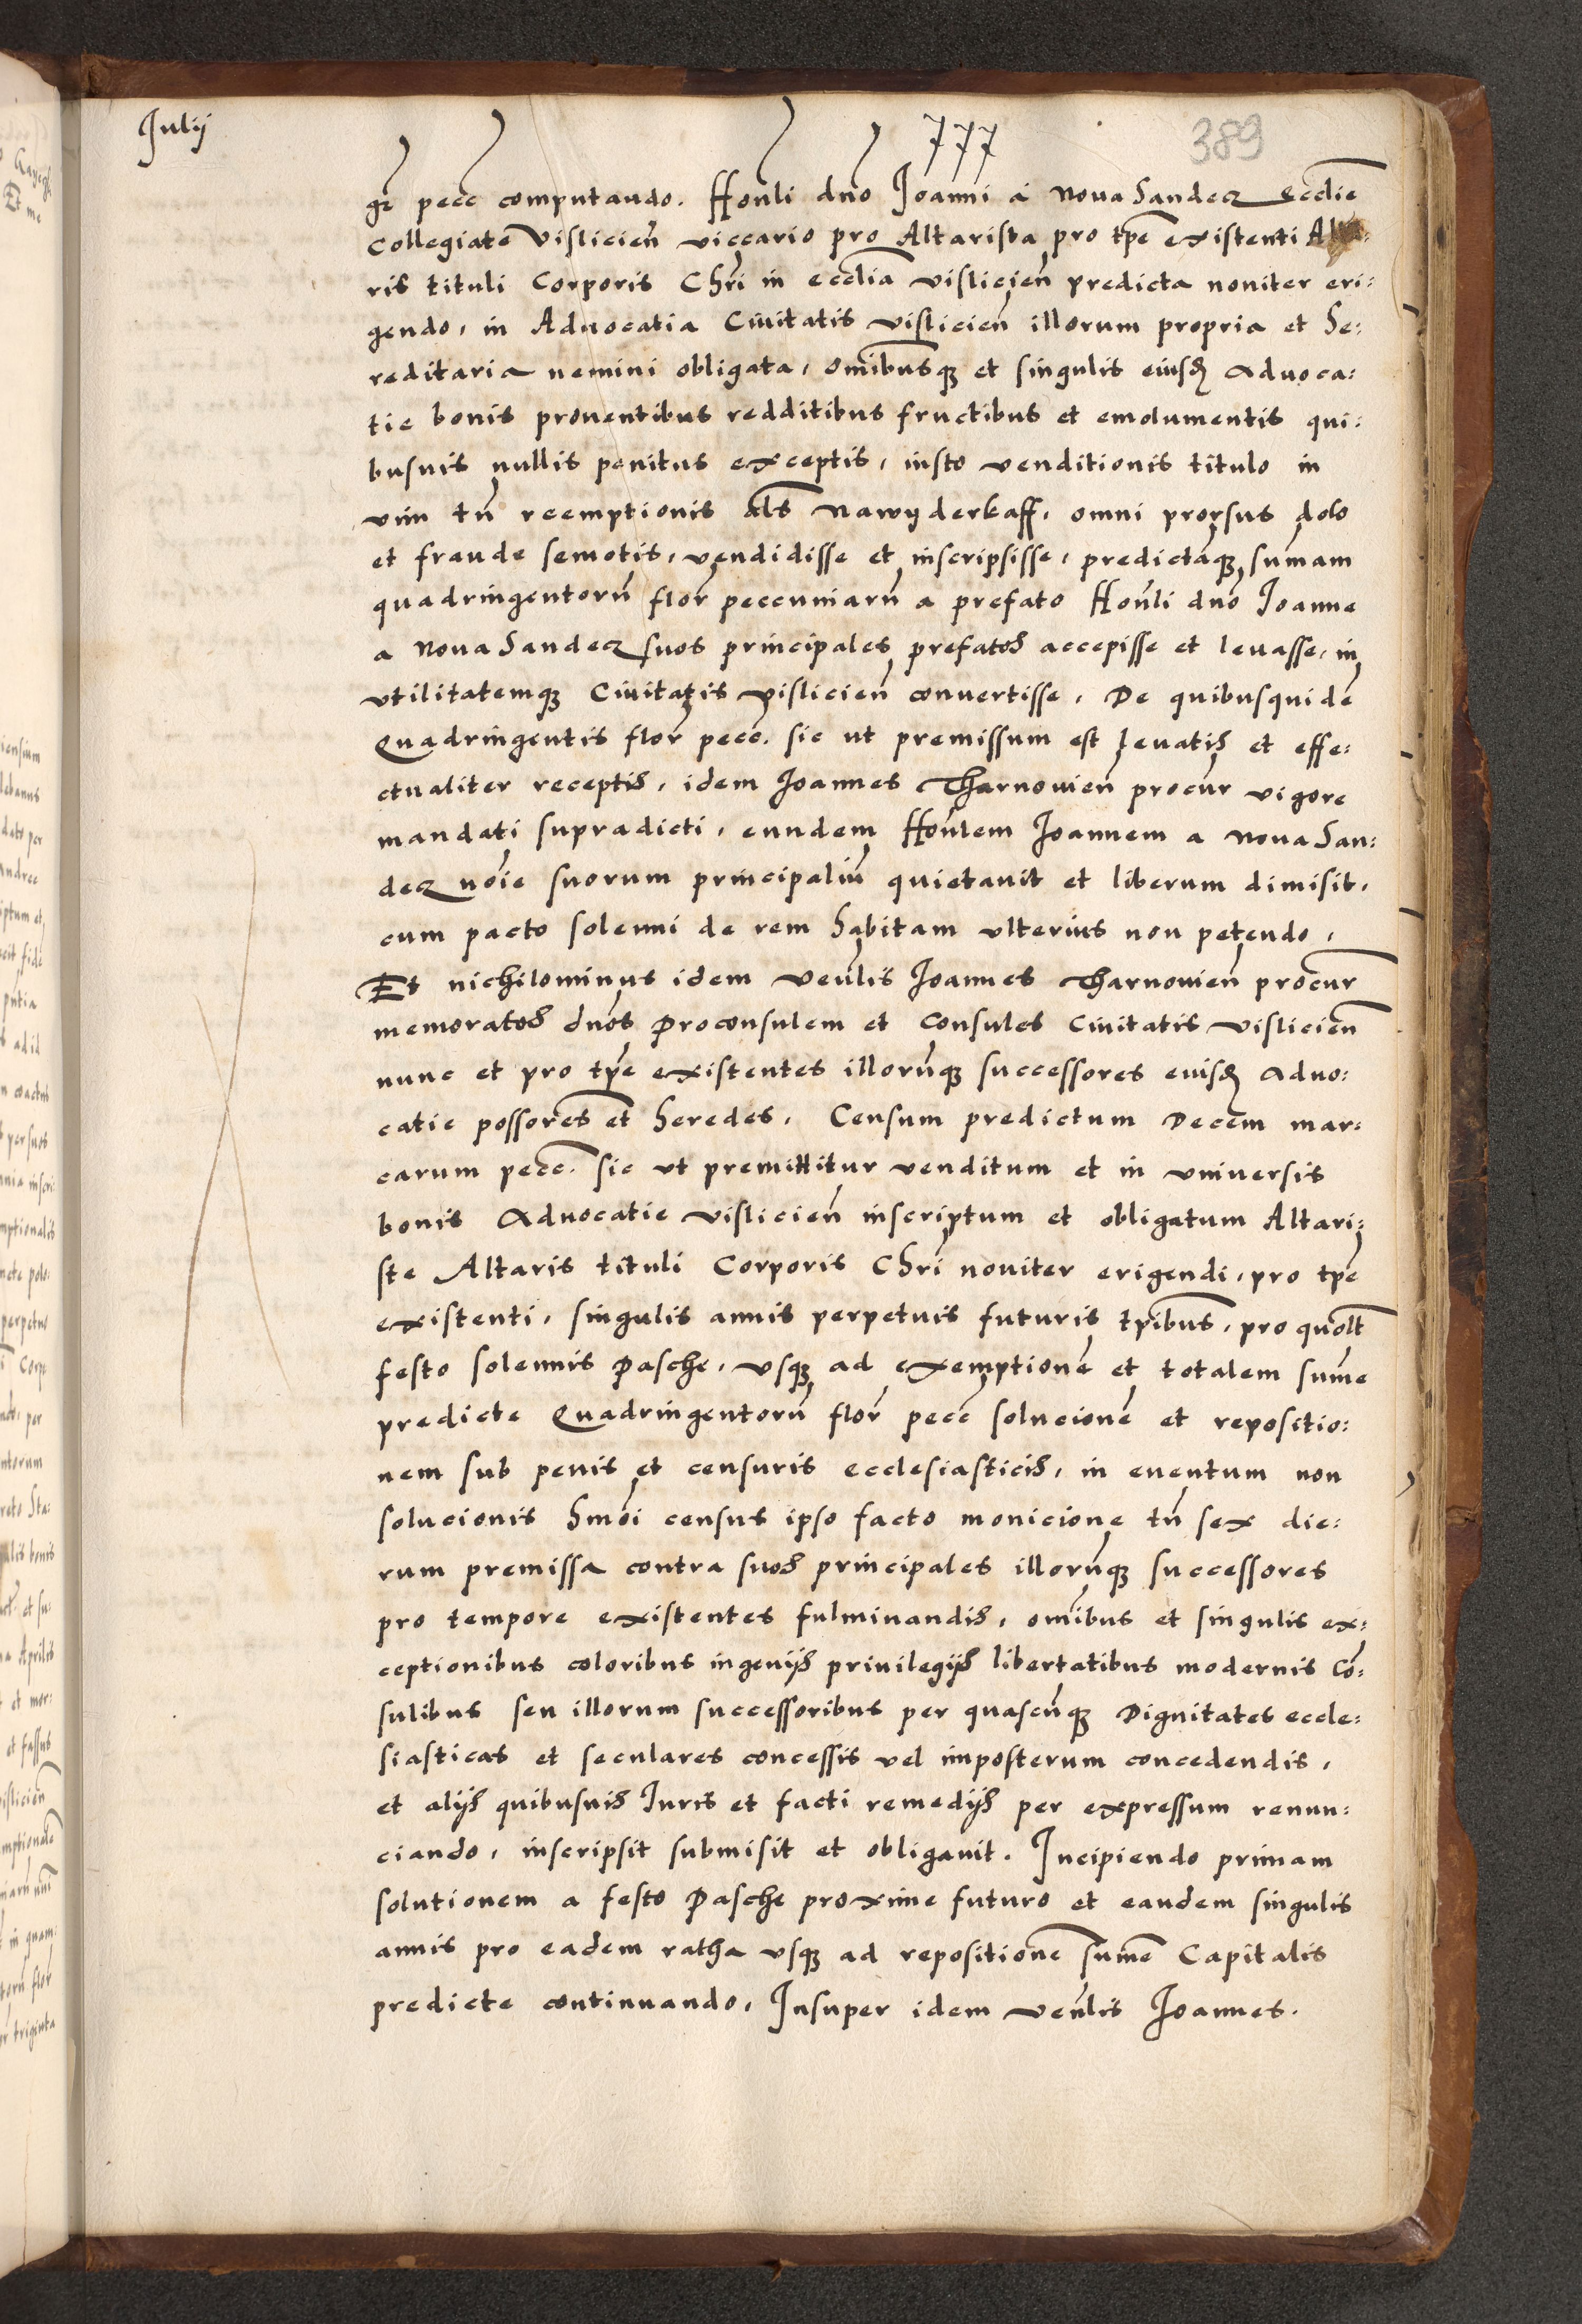 Julij
777
389
gr̃ pecc̃ computando. Honli dno Joanni a Nova Sandecz Ecclie
Collegiate Visliciens̃ viccario pro Altarista pro tpe existenti Alta:
ris tituli Corporis Chri in ecclia visliciens̃ predicta noviter eri:
gendo, in Aduocatia Ciuitatis visliciens̃ illorum propria et he:
reditaria nemini obligata, omibusq; et singulis eiusd̃ aduoca:
tie bonis prouentibus redditibus fructibus et emolumentis qui:
busuis nullis penitus exceptis, iusto venditionis titulo in
vim tñ reemptionis als Nawyderkaff, omni prorsus dolo
et fraude semotis, vendidisse et inscripsisse, predictãq; sum̃am
quadringentorũ flor̃ peccuniarũ a prefato Honli dno Joanne
a Nova Sandecz suos principales prefatos accepisse et leuasse, in
vtilitatemq; Ciuitatis visliciens̃ conuertisse. De quibusquidẽ
Quadringentis flor̃ pecc̃. sic ut premissum est leuatis et effe:
ctualiter receptis, idem Joannes Tharnouiens̃ procur̃ vigore
mandati supradicti, eundem Honlem Joannem a Nova San:
decz noie suorum principaliũ quietauit et liberum dimisit,
cum pacto solenni de rem habitam vlterius non petendo,
Et nichilominus idem Venlis Joannes Tharnouiens̃ procur̃
memoratos dnos Proconsulem et Consules Ciuitatis visliciens̃
nunc et pro tpe existentes illorũq; successores euisd̃ aduo:
catie possores et heredes. Censum predictum Decem mar:
carum pecc̃. sic vt premittitur venditum et in vniversis
bonis Aduocatie visliciens̃ inscriptum et obligatum Altari:
ste Altaris tituli Corporis Chri noviter erigendi, pro tpe
existenti, singulis annis perpetuis futuris tpibus, pro quolt
festo solennis Pasche, vsq; ad exemptionẽ et totalem sum̃e
predicte Quadringentorũ flor̃ pecc̃ solucionẽ et repositio:
nem sub penis et censuris ecclesiasticis, in euentum non
solucionis hmoi census ipso facto monicione tñ sex die:
rum premissa contra suos principales illorũq; successores
pro tempore existentes fulminandis, omibus et singulis ex:
ceptionibus coloribus ingenijs priuilegijs libertatibus modernis Cõ:
sulibus seu illorum successoribus per quascũq; Dignitates eccle:
siasticas et seculares concessis vel imposterum concedendis,
et alijs quibusuis Juris et facti remedijs per expressum renun:
ciando, inscripsit submisit et obligauit. Incipiendo primam
solutionem a festo Pasche proxime futuro et eandem singulis
annis pro eadem ratha vsq; ad repositionẽ sum̃e Capitalis
predicte continuando, Insuper idem Venlis Joannes.